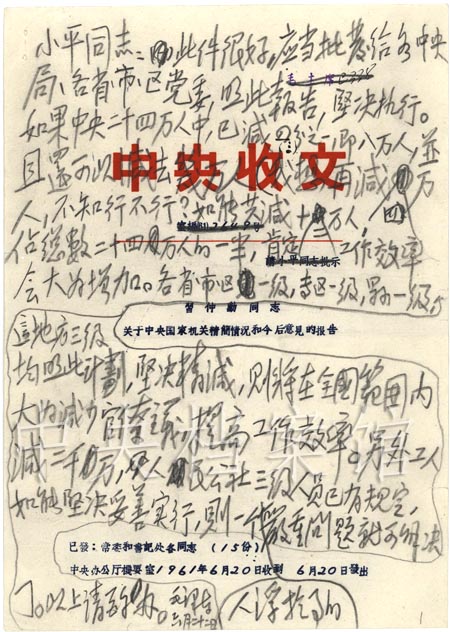 小平同志：此件很好，应当批发给各中央
毛主席
局、各省市区党委，照此报告，坚决执行。
如果中央二十四万人中，已减 即八万人，並
且还可以 再减 万
中央收文
人，不知行不行？如能共减十 万人，
佔总数二十四万人的一半，肯定 工作效率
请小平同志批示
会大为增加。各省市区 一级，专区一级，县一级，
习仲勋同志
关于中央国家机关精简情况和今后意见的报告
这地方三级
均照此计划，坚决精减，则将在全国范围内
大为减少官僚主义，提高工作效率。另外工人
中央档案馆
减二千万，及人民公社三级人员已有规定，
如能坚决妥善实行，则一个严重问题就可解决
已發：常委和書記处各同志（15份）
中央办公厅提要室1961年6月20日收到 6月20日發出
了。以上请 毛泽东
六月二十二日
人浮于事的